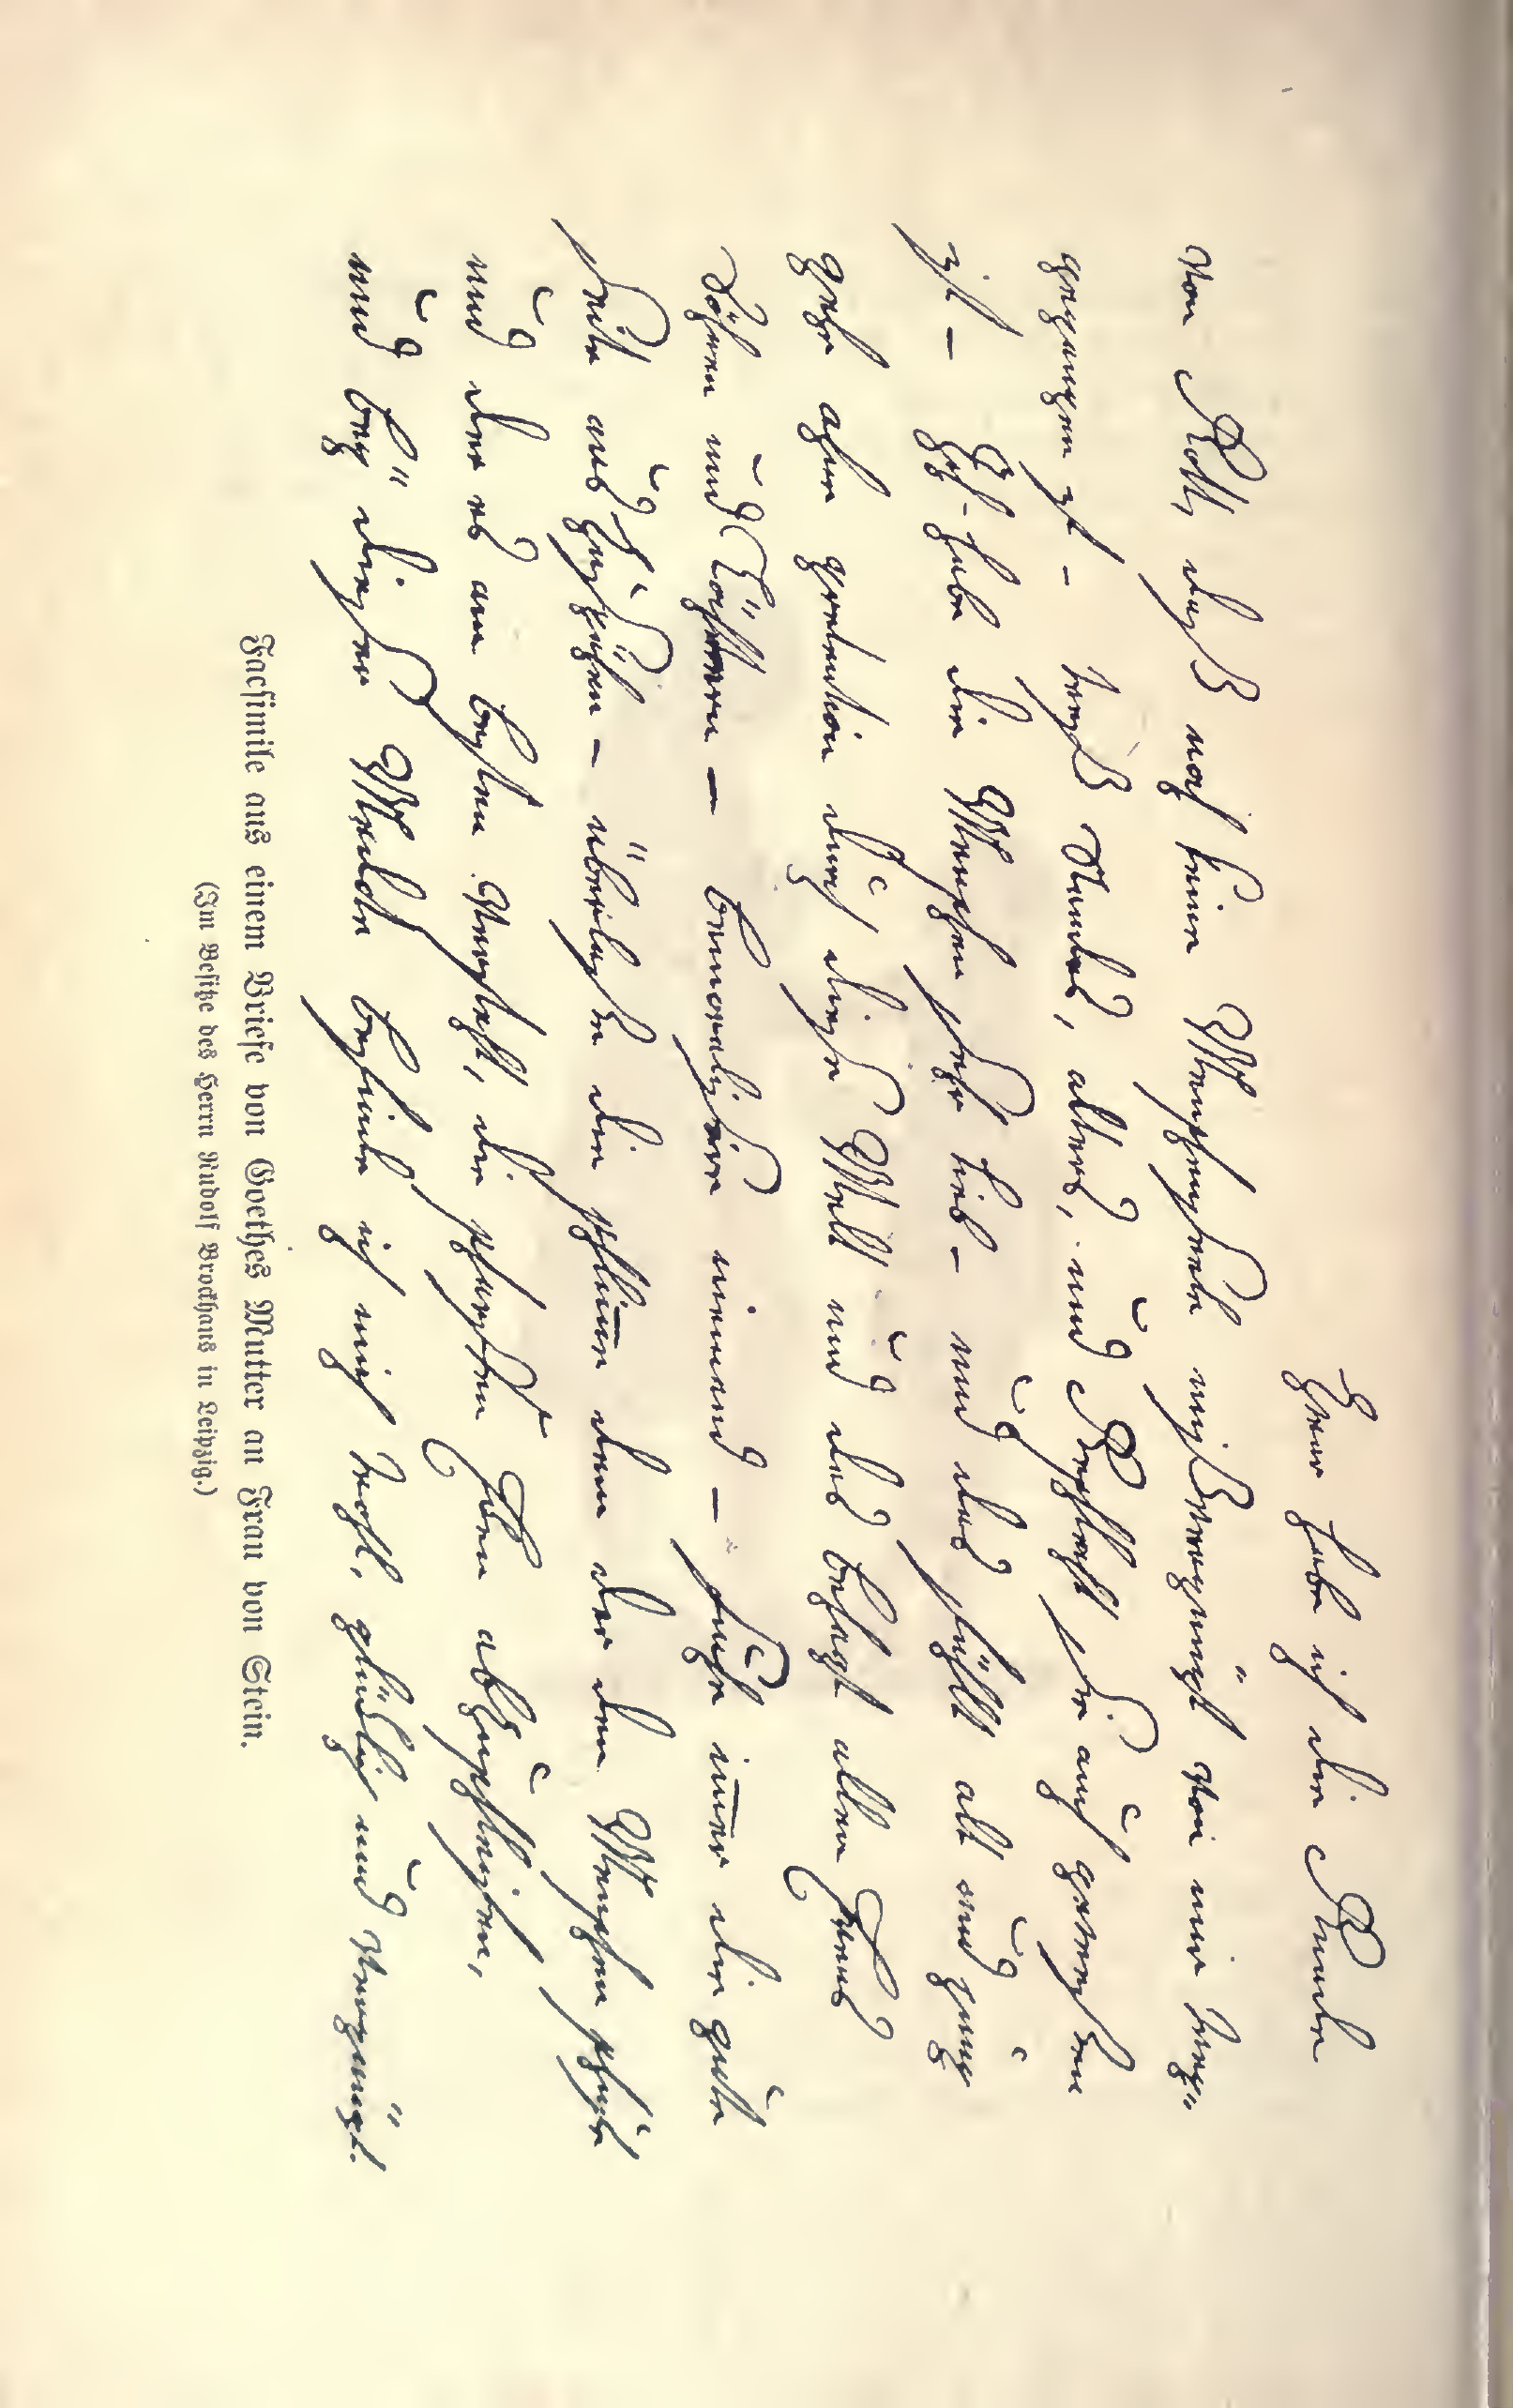 Zwar habe ich die Gnade
von Gott, daß noch keine Menschenseele mißvergnügt von mir weg-
gegangen ist - weß Standes, alters, und Geschlecht sie auch geweßen
ist - Ich habe die Menschen sehr lieb - und das fühlt alt und jung
gehe ohne pretention durch diese Welt und das behagt allen Evens
Söhnen und Töchtern - bemoralisire niemand - suche immer die gute
seite aus zuspähen - überlaße die schlimme dem der den Menschen schufe
und der es am besten versteht, die scharffen Ecken abzuschleifen,
und bey dieser Methode befinde ich mich wohl, glücklich und vergnügt.
Facsimile aus einem Briefe von Goethes Mutter an Frau von Stein.
(Im Besitze des Herrn Rudolf Brockhaus in Leipzig.)